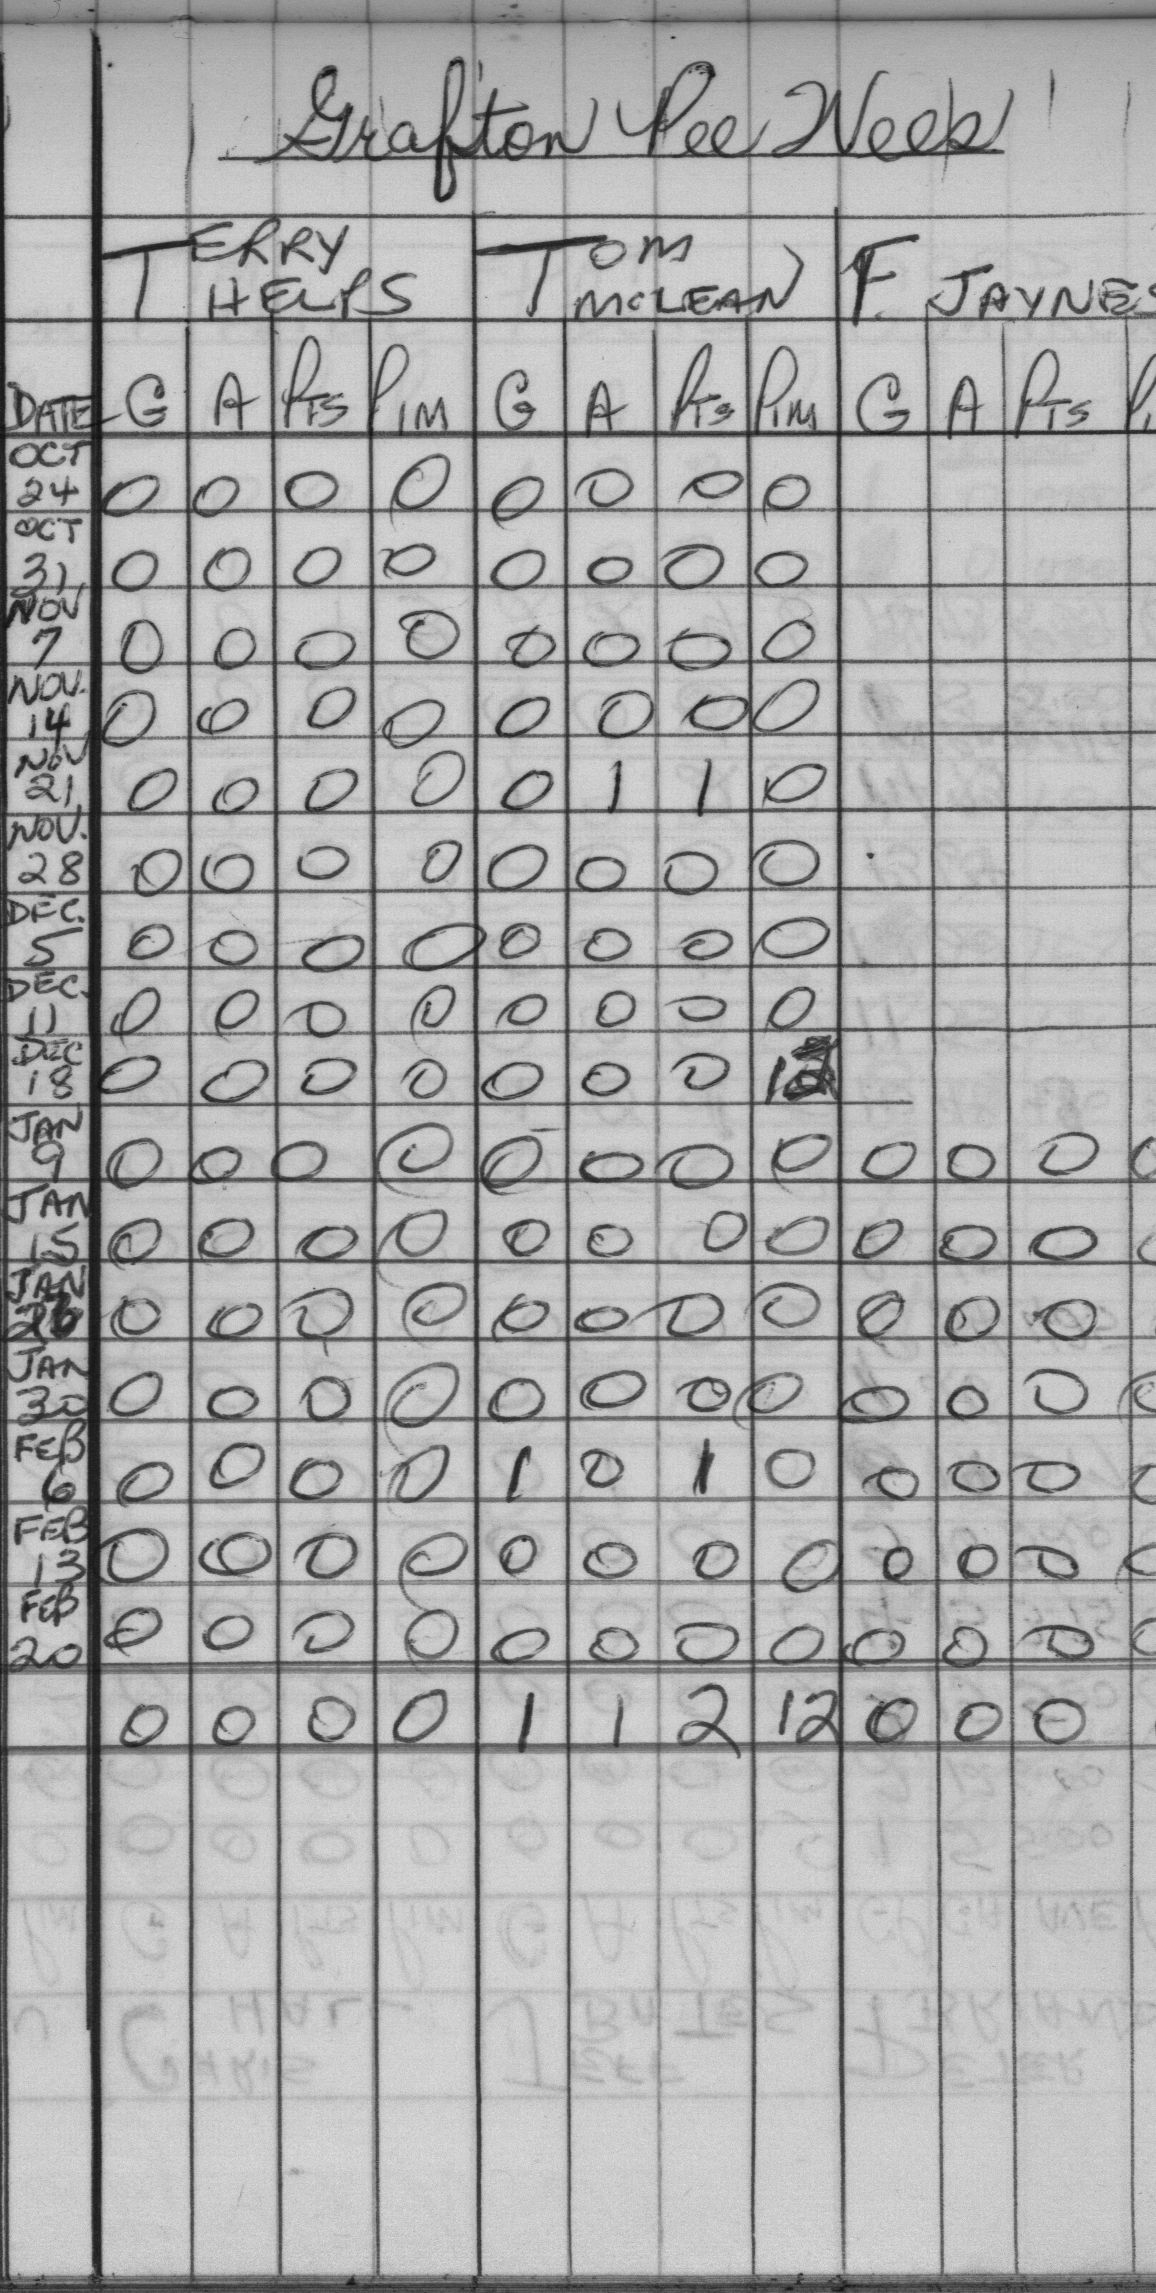 Grafton Pee Weeb
TERRY HELPS TOM McLEAN F. JAYNES
DATE G A PTS PIM G A PTS PIM G A PTS
OCT 24 0 0 0 0 0 0 0 0
OCT 31 0 0 0 0 0 0 0 0
NOV 7 0 0 0 0 0 0 0 0
NOV. 14 0 0 0 0 0 0 0 0
NOV 21 0 0 0 0 0 1 1 0
NOV. 28 0 0 0 0 0 0 0 0
DEC. 5 0 0 0 0 0 0 0 0
DEC. 11 0 0 0 0 0 0 0 0
DEC 18 0 0 0 0 0 0 0 12
JAN 9 0 0 0 0 0 0 0 0 0 0 0 0
JAN 15 0 0 0 0 0 0 0 0 0 0 0
JAN 0 0 0 0 0 0 0 0 0 0 0
JAN 30 0 0 0 0 0 0 0 0 0 0 0
FEB 6 0 0 0 0 1 0 1 0 0 0 0 0
FEB 13 0 0 0 0 0 0 0 0 0 0 0
FEB 20 0 0 0 0 0 0 0 0 0 0 0
0 0 0 0 1 1 2 12 0 0 0